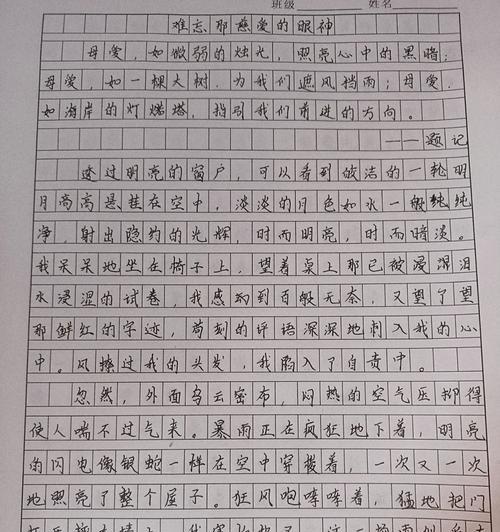 班级 姓名
难忘那慈爱的眼神
母爱，如微弱的烛光，照亮心中的黑暗；
母爱，如一棵大树，为我们遮风挡雨；母爱，
如海岸的灯塔，指引我们前进的方向。
——题记
透过明亮的窗户，可以看到皎洁的一轮明
月高高悬挂在空中，淡淡的月色如水一般纯纯
净，射出隐约的光辉，时而明亮，时而暗淡。
我呆呆地坐在椅子上，望着桌上那已被泪
水浸湿的试卷，我感到到百般无奈，又望了望
那鲜红的字迹，苛刻的评语深深地刺入我的心
中。风擦过我的头发，我陷入了自责中。
忽然，外面乌云密布，闷热的空气压抑得
使人喘不过气来。暴雨正在疯狂地下着，明亮
的闪电像银蛇一样在空中穿梭着，一次又一次
地照亮了整个屋子。狂风咆哮着，猛地把门